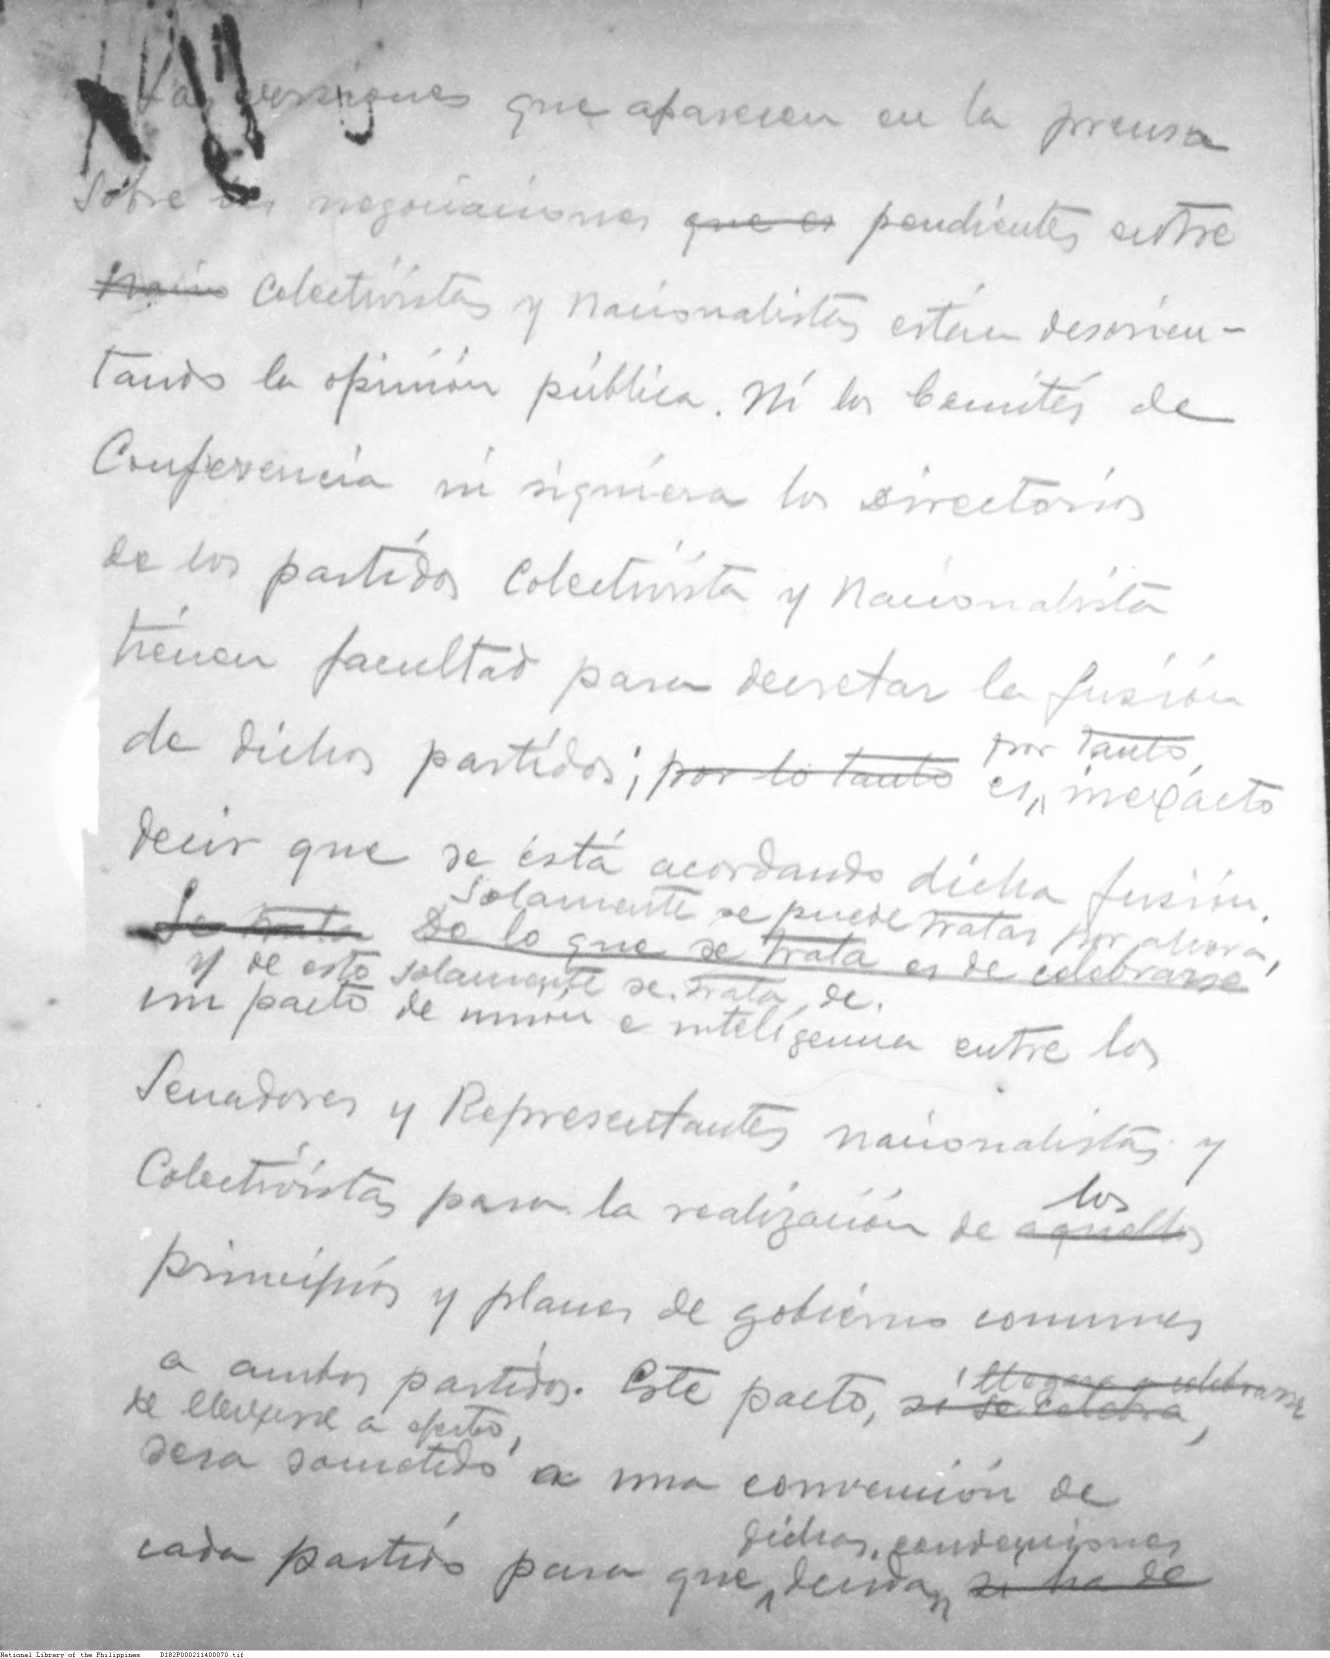 Las versiones que aparecen en la prensa
sobre las negociaciones que es pendientes entre
Nacio Colectivistas y Nacionalistas están desorien-
tando la opinión pública. Ni los Comités de
Conferencia ni siquiera los Directorios
de los partidos Colectivista y Nacionalista
tienen facultad para decretar la fusión
por tanto,
de dichos partidos; por lo tanto es, inexacto
decir que se está acordando dicha fusión.
Solamente se puede tratar por ahora,
Se trata De lo que se trata es de celebrarse
y de esto solamente se trata, de
un pacto de unión e inteligencia entre los
Senadores y Representantes nacionalistas y
los
Colectivistas para la realización de aquellos
principios y planes de gobierno comunes
llegase a celebrarse
a ambos partidos. Este pacto, si se celebra,
de llevarse a efecto,
sera sometido a una convención de
dichas convenciones
cada partido para que decida si ha de
National Library of the Philippines D182P000211400070.tif